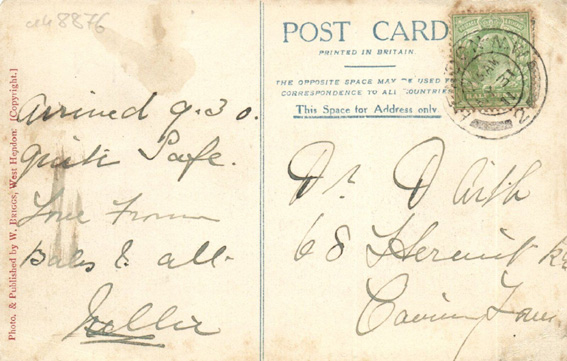 ah8876
Photo, & Published by W. Briggs, West Hendon. [Copyright.]
Arrived 9.30.
Quite Safe.
Love From
Babs & all.
Nellie
POST CARD
PRINTED IN BRITAIN.
THE OPPOSITE SPACE MAY BE USED F
CORRESPONDENCE TO ALL COUNTRIE
This Space for Address only
HENDON. N.W.
2
Dr D
68 Hermit Rd
Canning Town